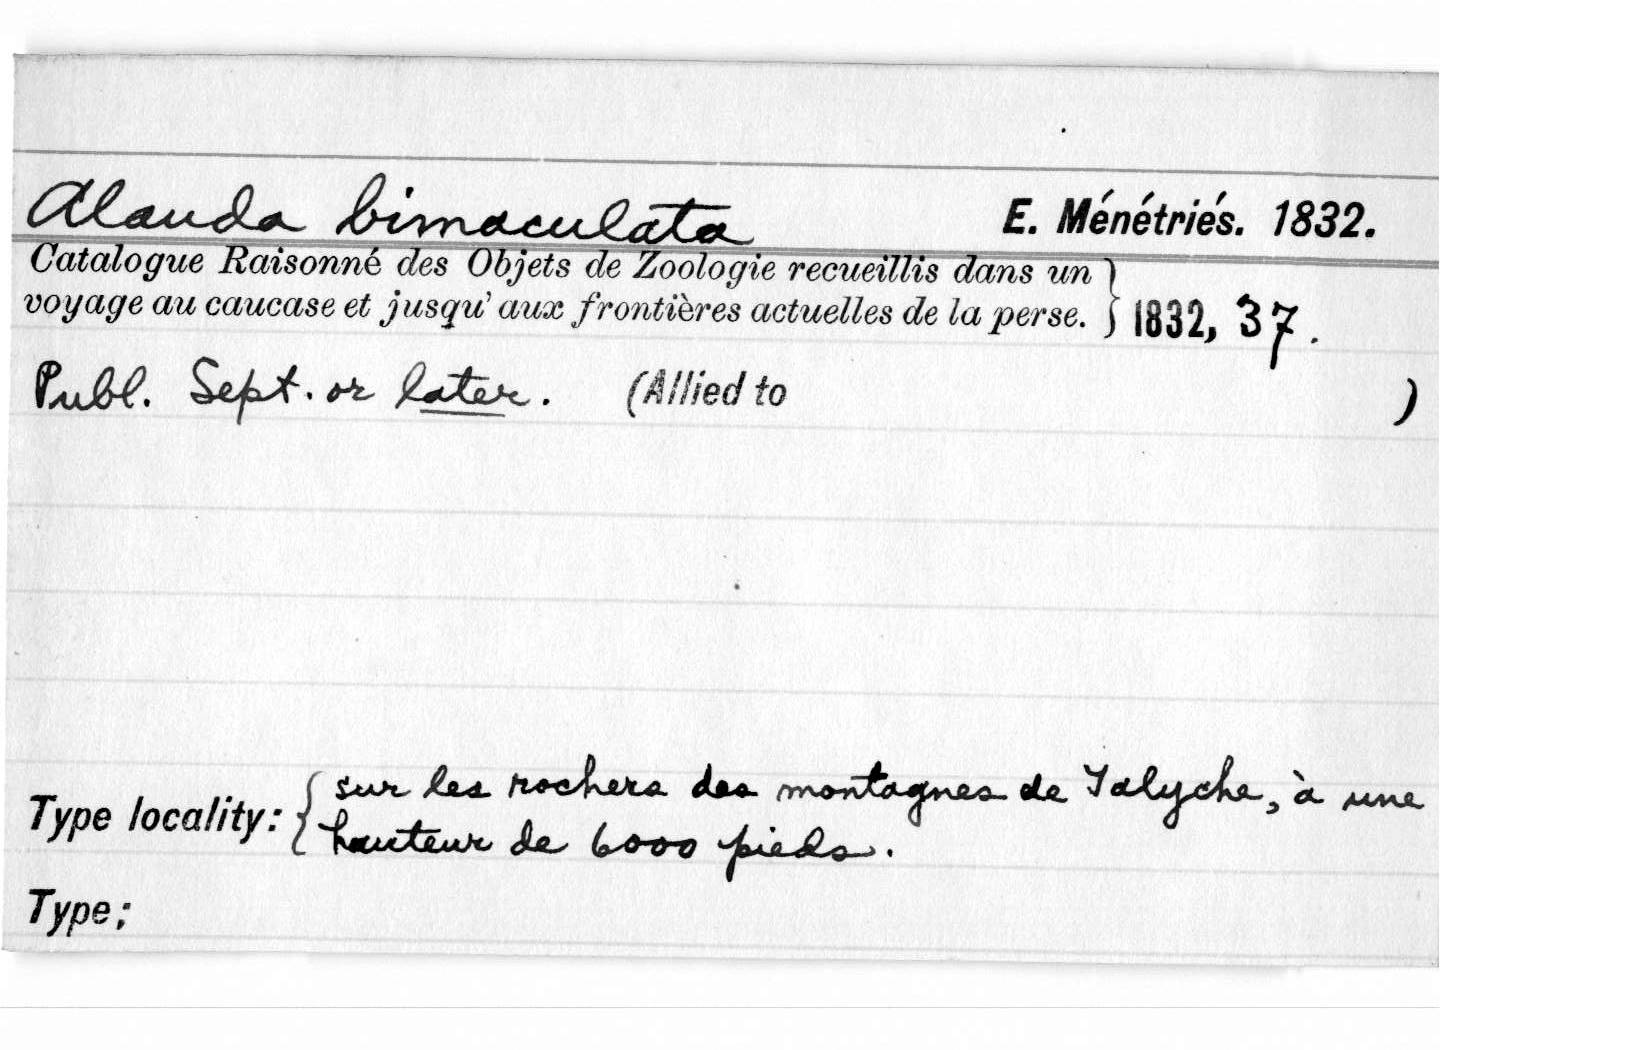 Alauda bimaculata E. Ménétriés. 1832.
Catalogue Raisonné des Objets de Zoologie recueillis dans un
voyage au caucase et jusqu' aux frontières actuelles de la perse. } 1832, 37.
Publ. Sept. or later. (Allied to )
Type locality: { sur les rochers des montagnes de Talyche, à une
hauteur de 6000 pieds.
Type;